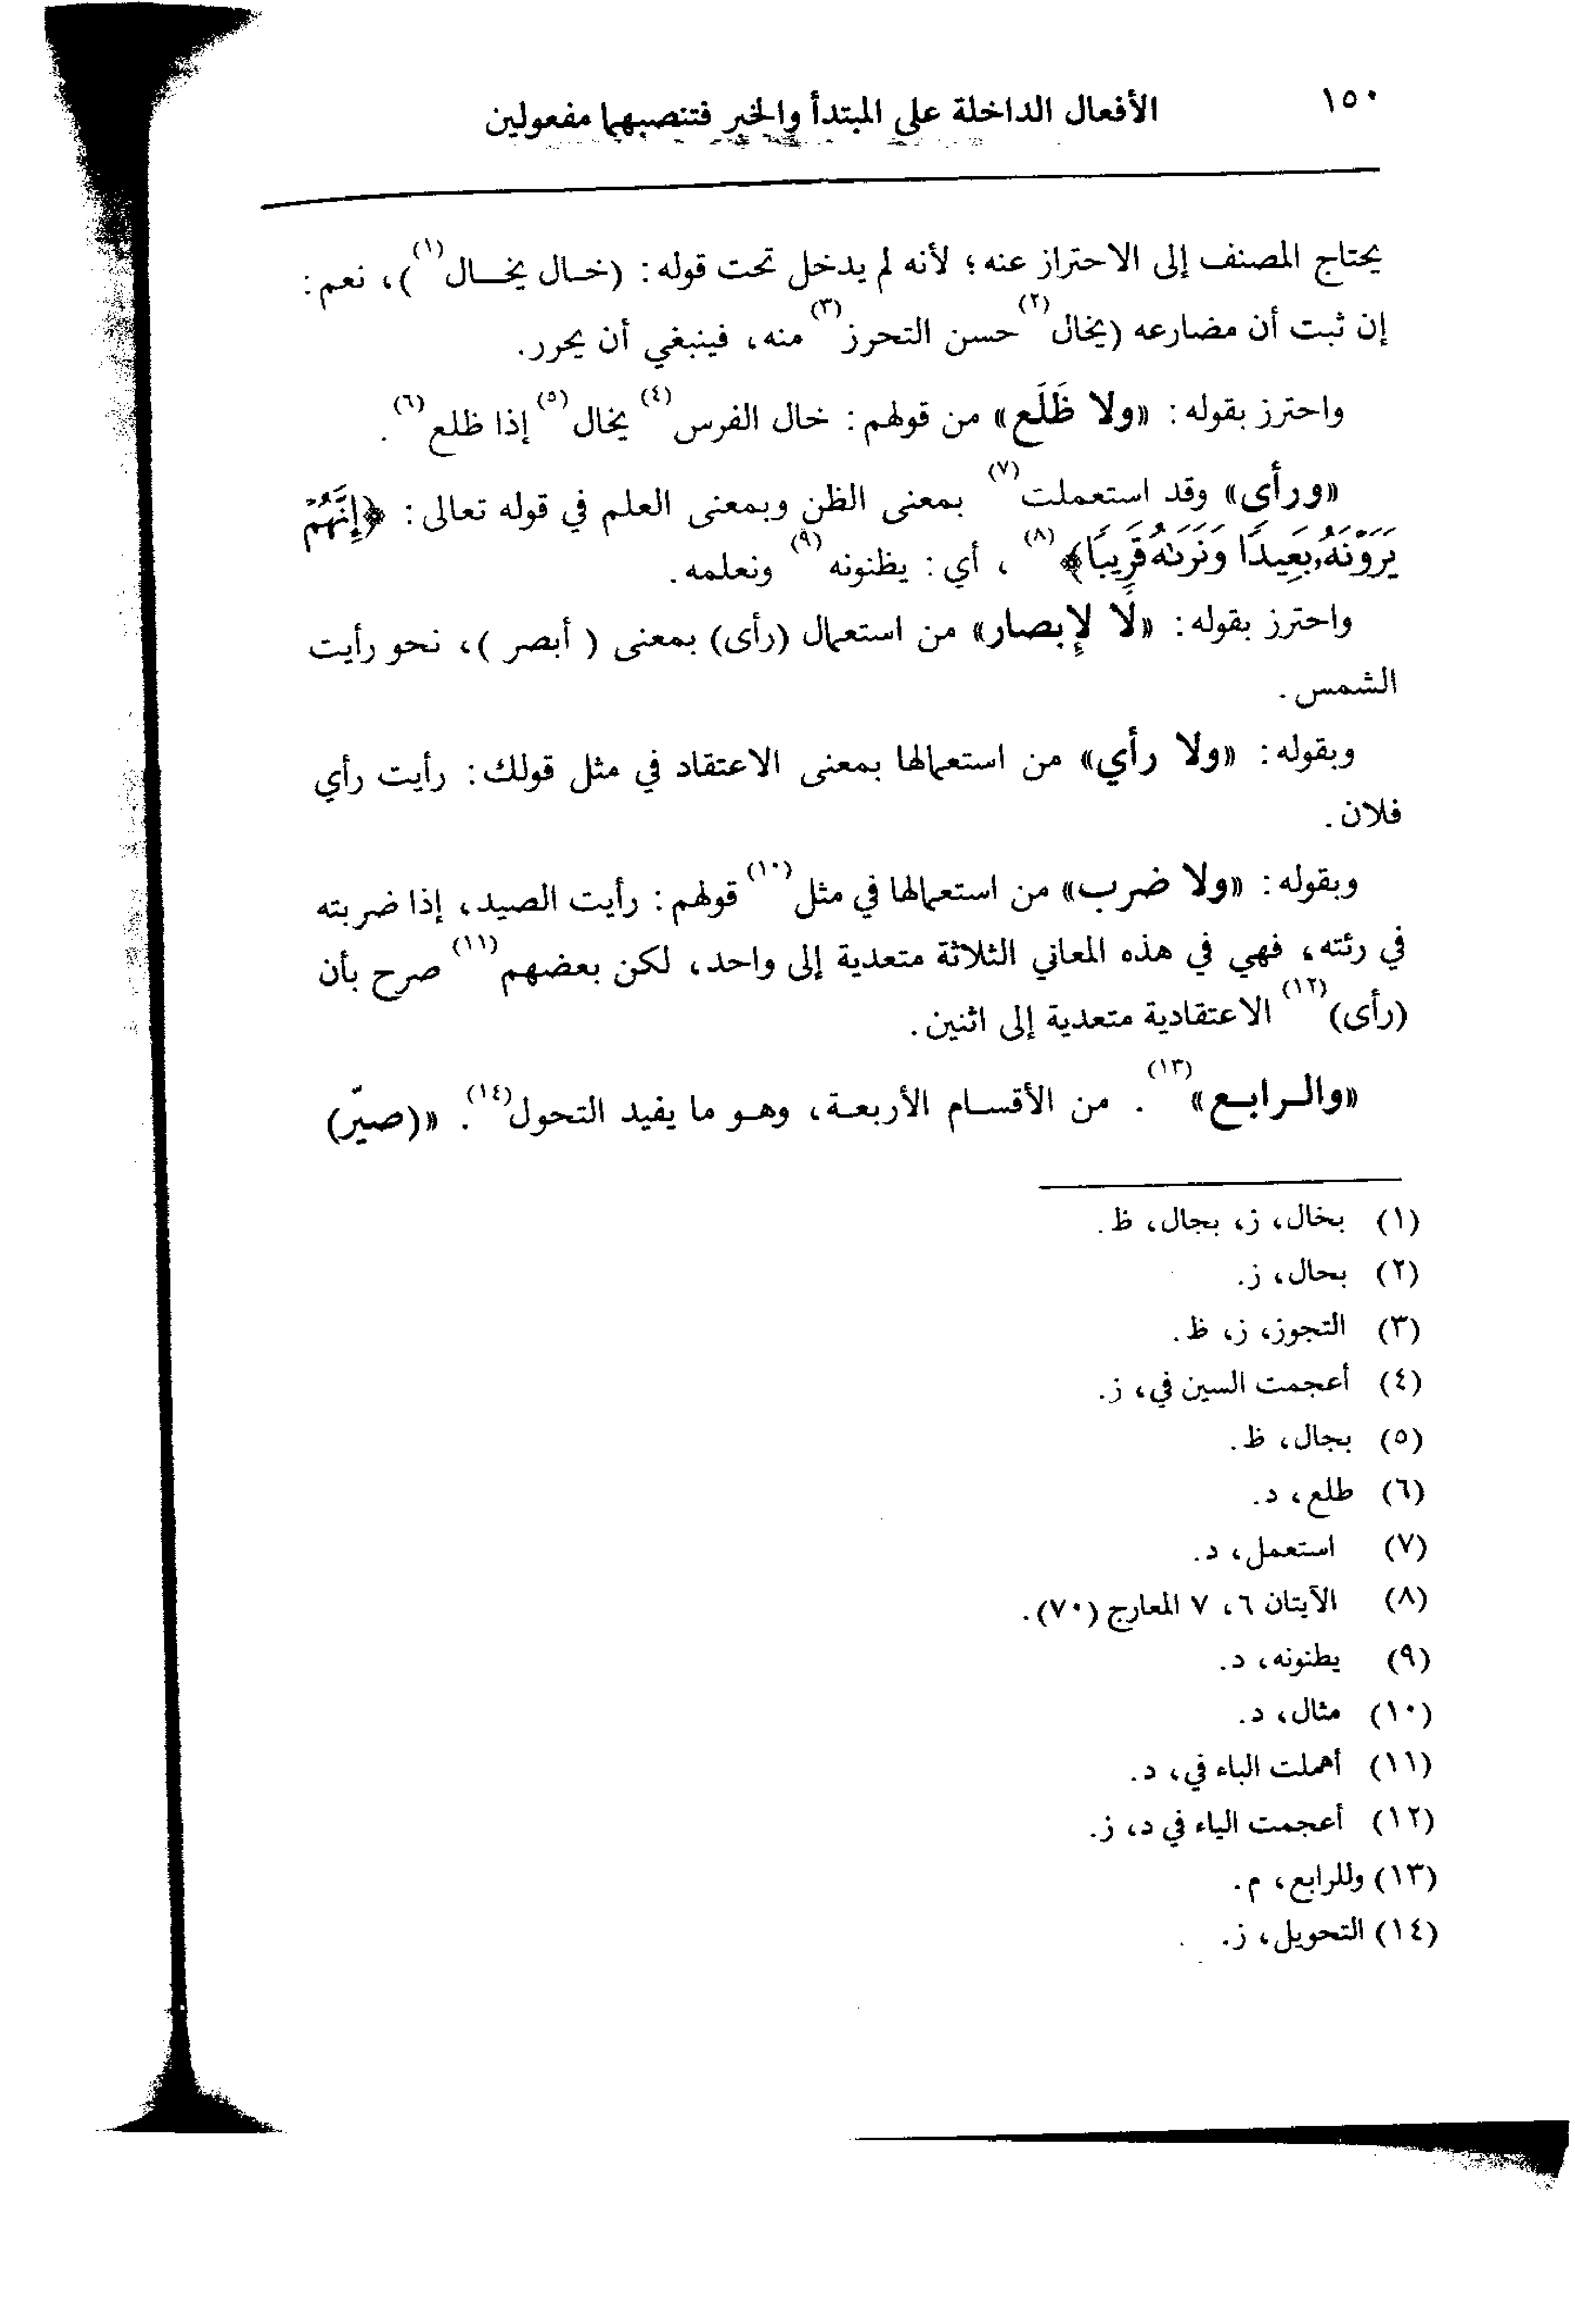 ١٥٠
الأفعال الداخلة على المبتدأ والخبر فتنصبهما مفعولين
يحتاج المصنف إلى الاحتراز عنه؛ لأنه لم يدخل تحت قوله: (خـال يخـــال(١))، نعم:
إن ثبت أن مضارعه (يخال(٢) حسن التحرز(٣) منه، فينبغي أن يحرر.
واحترز بقوله: «ولا ظَلَع» من قولهم: خال الفرس(٤) يخال(٥) إذا ظلع(٦).
«ورأى» وقد استعملت(٧) بمعنى الظن وبمعنى العلم في قوله تعالى: ﴿إِنَّهُمْ
يَرَوْنَهُۥ بَعِيدًا وَنَرَىٰهُ قَرِيبًا﴾(٨)، أي: يظنونه(٩) ونعلمه.
واحترز بقوله: «لَا لإِبصار» من استعمال (رأى) بمعنى ( أبصر )، نحو رأيت
الشمس.
وبقوله: «ولا رأي» من استعمالها بمعنى الاعتقاد في مثل قولك: رأيت رأي
فلان.
وبقوله: «ولا ضرب» من استعمالها في مثل(١٠) قولهم: رأيت الصيد، إذا ضربته
في رئته، فهي في هذه المعاني الثلاثة متعدية إلى واحد، لكن بعضهم(١١) صرح بأن
(رأى)(١٢) الاعتقادية متعدية إلى اثنين.
«والـرابـع»(١٣). من الأقسـام الأربعـة، وهـو ما يفيد التحول(١٤). «(صيّر)
(١) بخال، ز، بجال، ظ.
(٢) بحال، ز.
(٣) التجوز، ز، ظ.
(٤) أعجمت السين في، ز.
(٥) بجال، ظ.
(٦) طلع، د.
(٧) استعمل، د.
(٨) الآيتان ٦، ٧ المعارج (٧٠).
(٩) يطنونه، د.
(١٠) مثال، د.
(١١) أهملت الباء في، د.
(١٢) أعجمت الياء في د، ز.
(١٣) وللرابع، م.
(١٤) التحويل، ز.